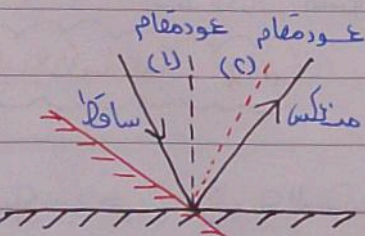 عودمقام عودمقام
(١) (٢)
ساقط
منعكس